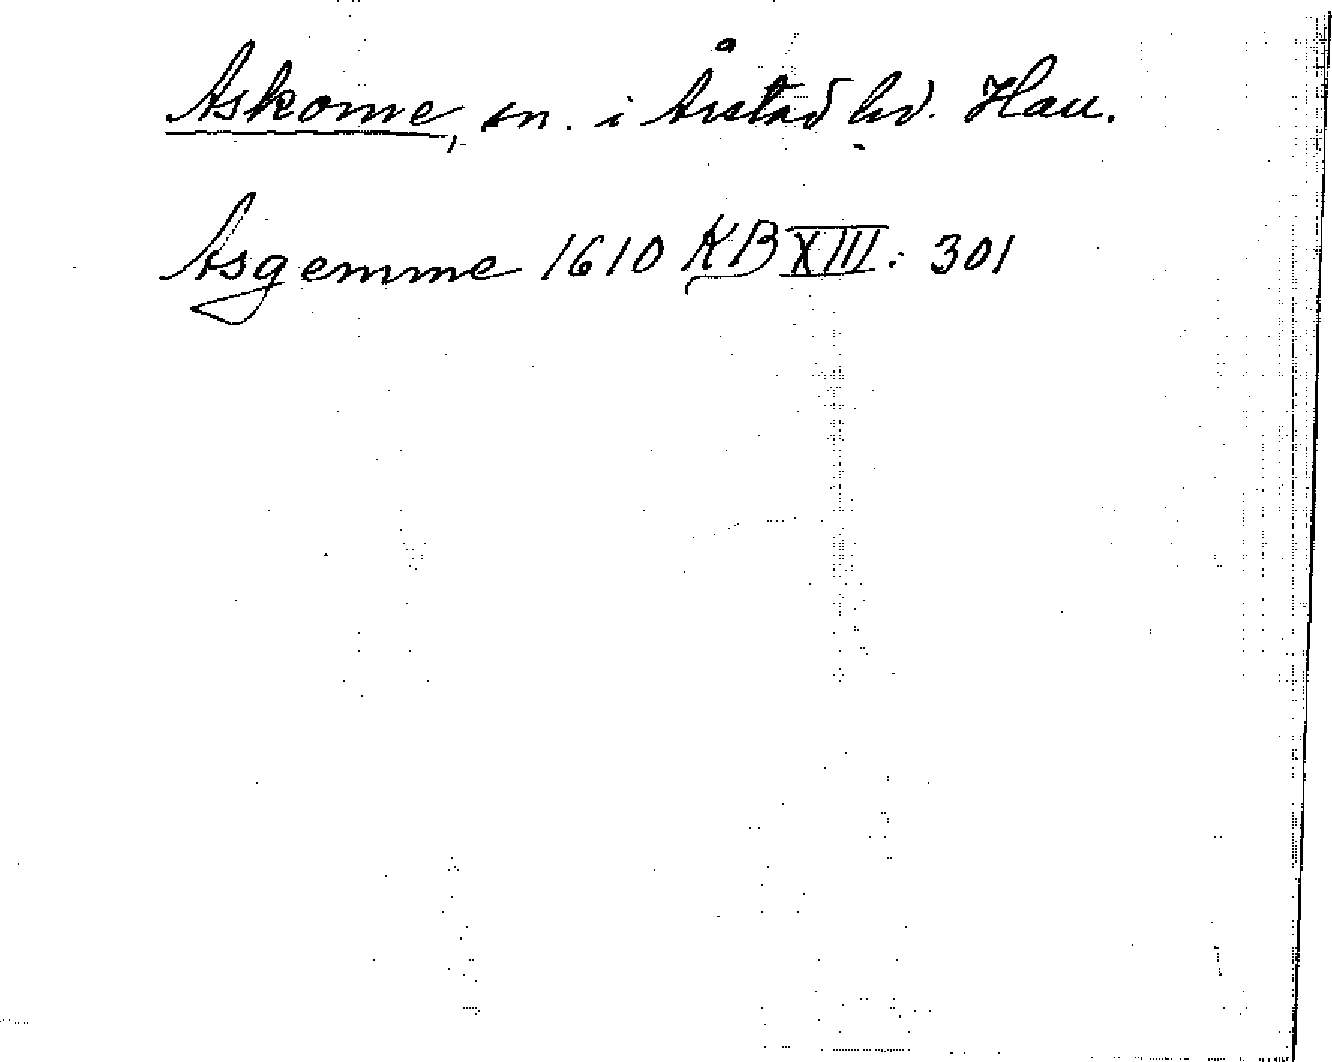 Askome, sn. i Årstad hd. Hall.
Asgemme 1610 KB XIII: 301